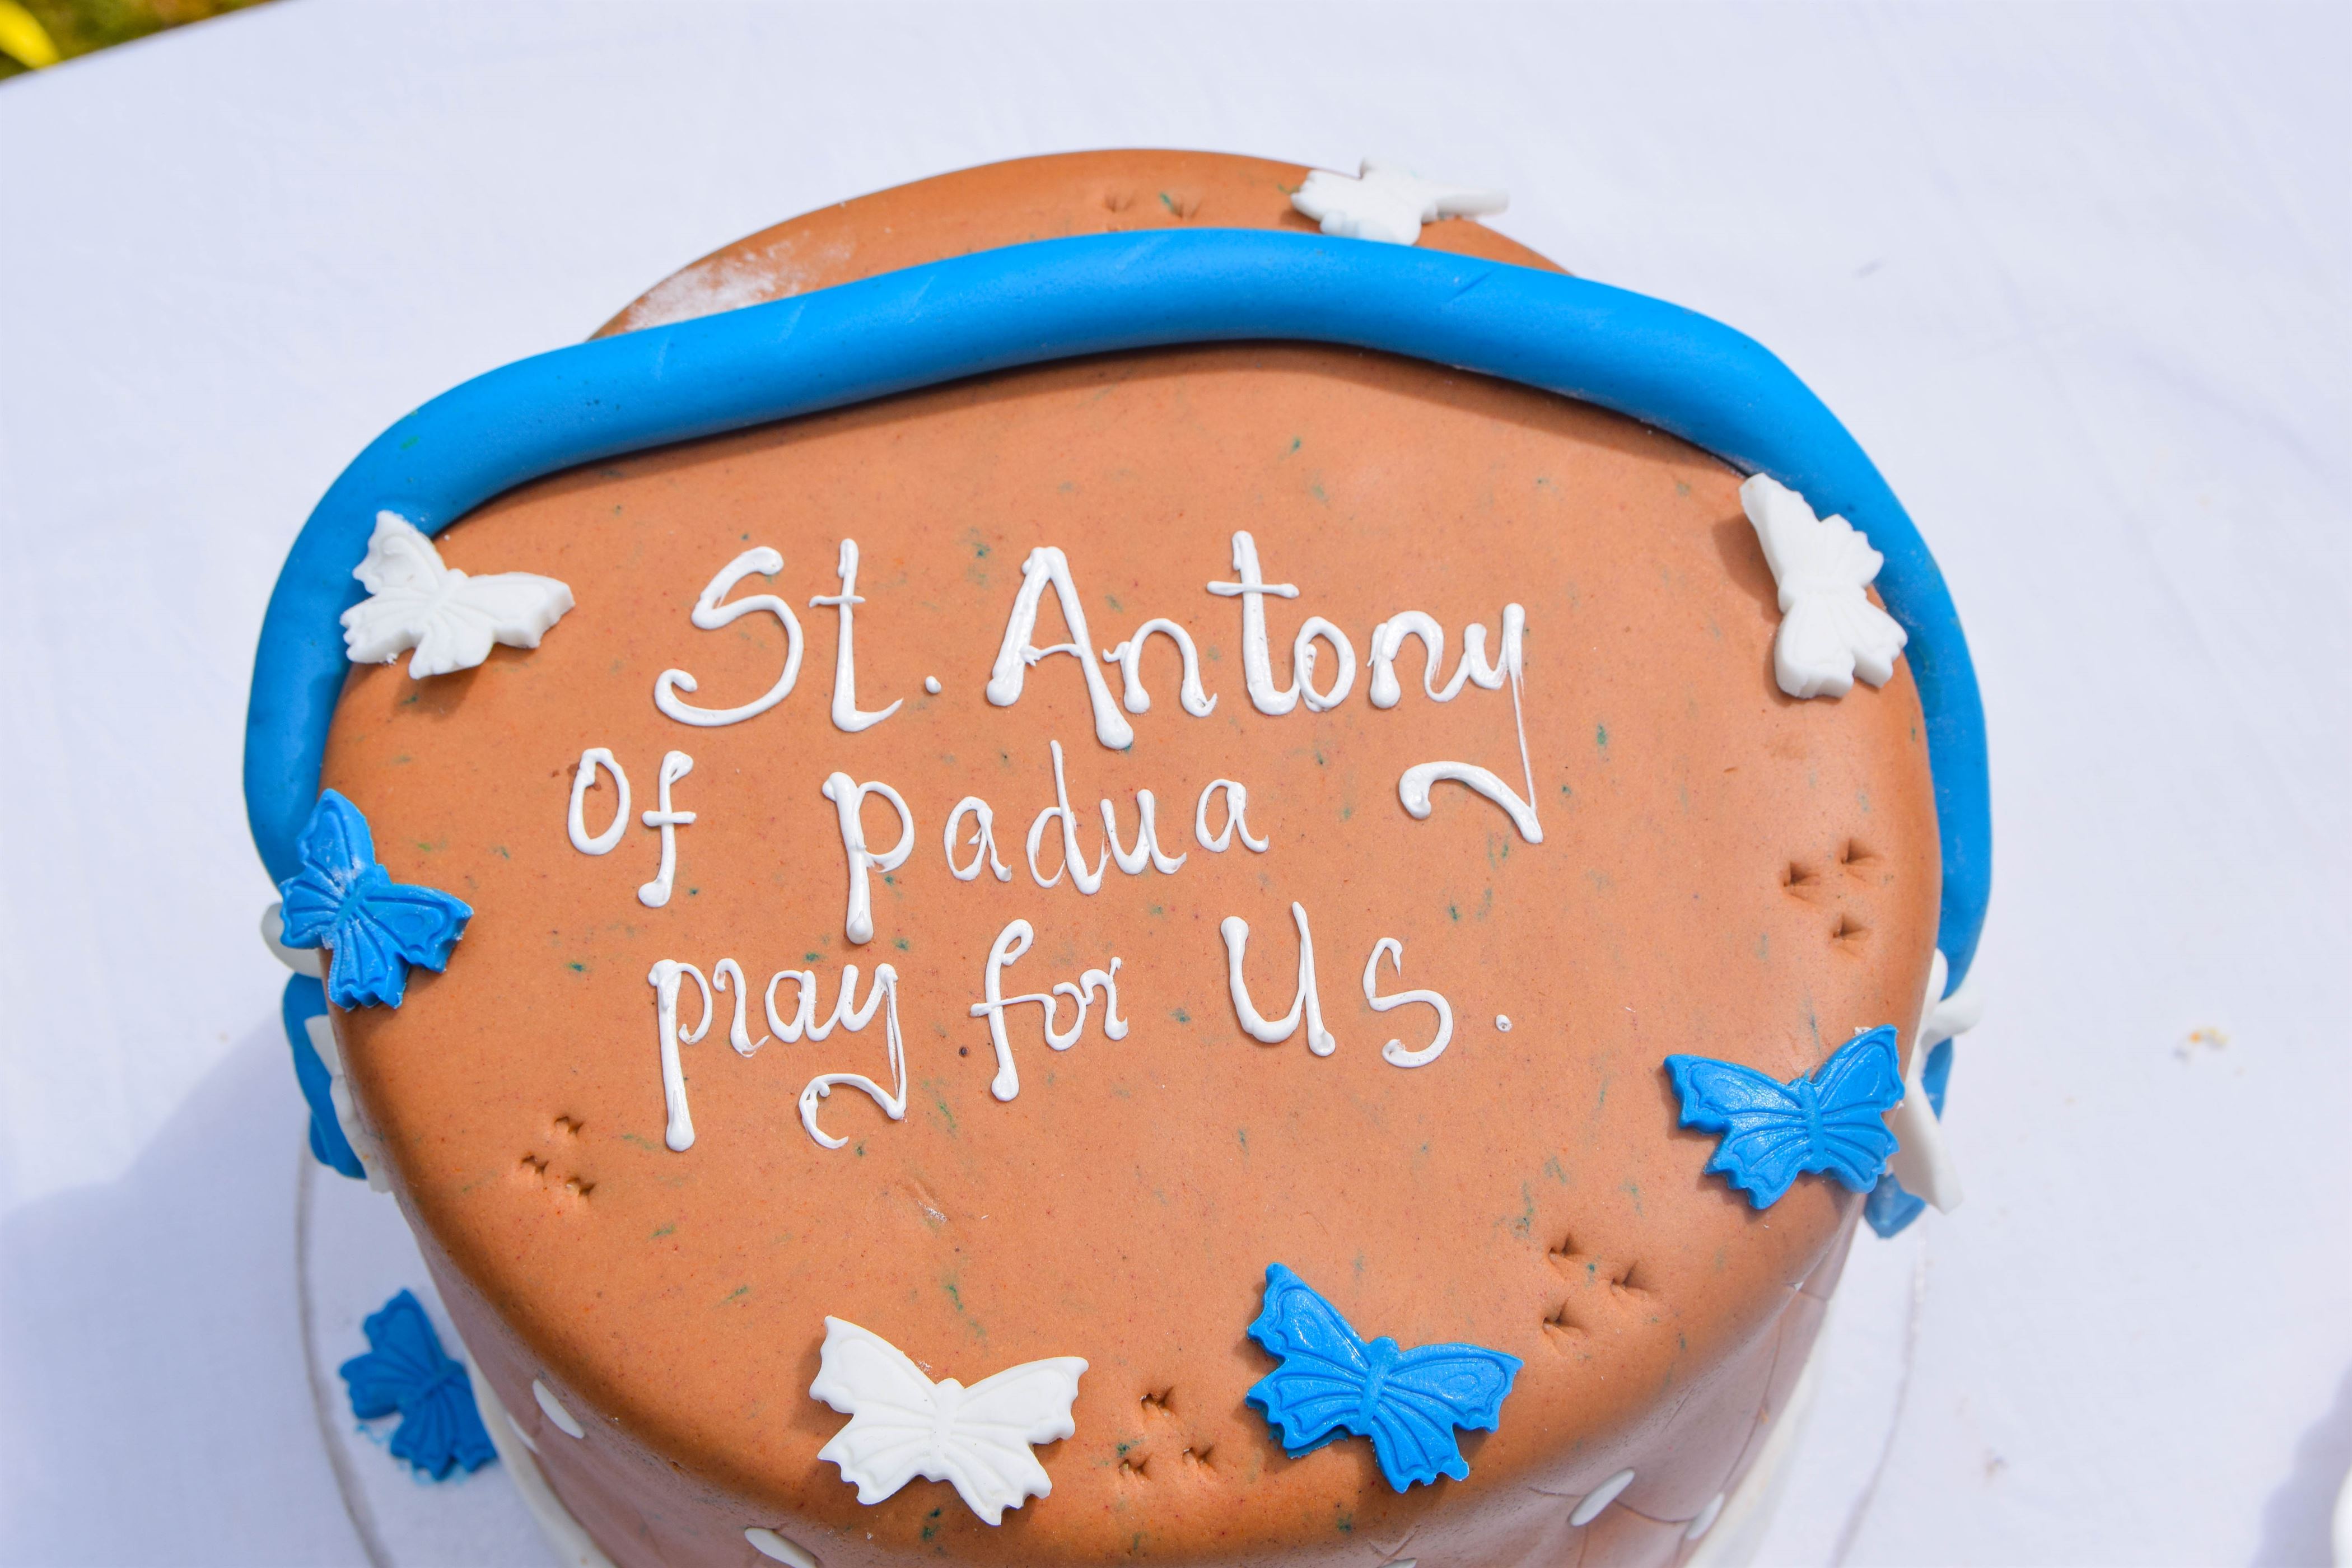 St. Antony
Of padua
pray for Us.